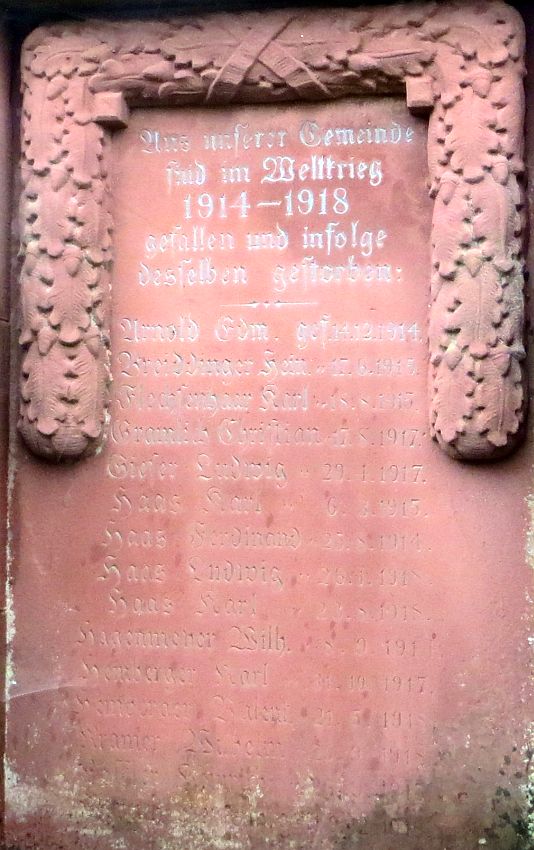 Aus unserer Gemeinde
sind im Weltkrieg
1914–1918
gefallen und infolge
desselben gestorben:
Arnold Edm. gef. 14.12.1914.
Breiddinger Hein. " 17.6.1915.
Flechsenhaar Karl " 18.8.1915.
Gramlich Christian " 17.8.1917.
Gieser Ludwig " 29.4.1917.
Haas Karl " 6. 1915.
Haas Ferdinand " 25.8.1914.
Haas Ludwig " 26.4.1918.
Haas Karl " 8.1918.
Hagenmeyer Wilh. " 8.9.
Hemberger Karl 10.1917.
Hemberger 21. 1918.
Kramer Wilhelm 1918.